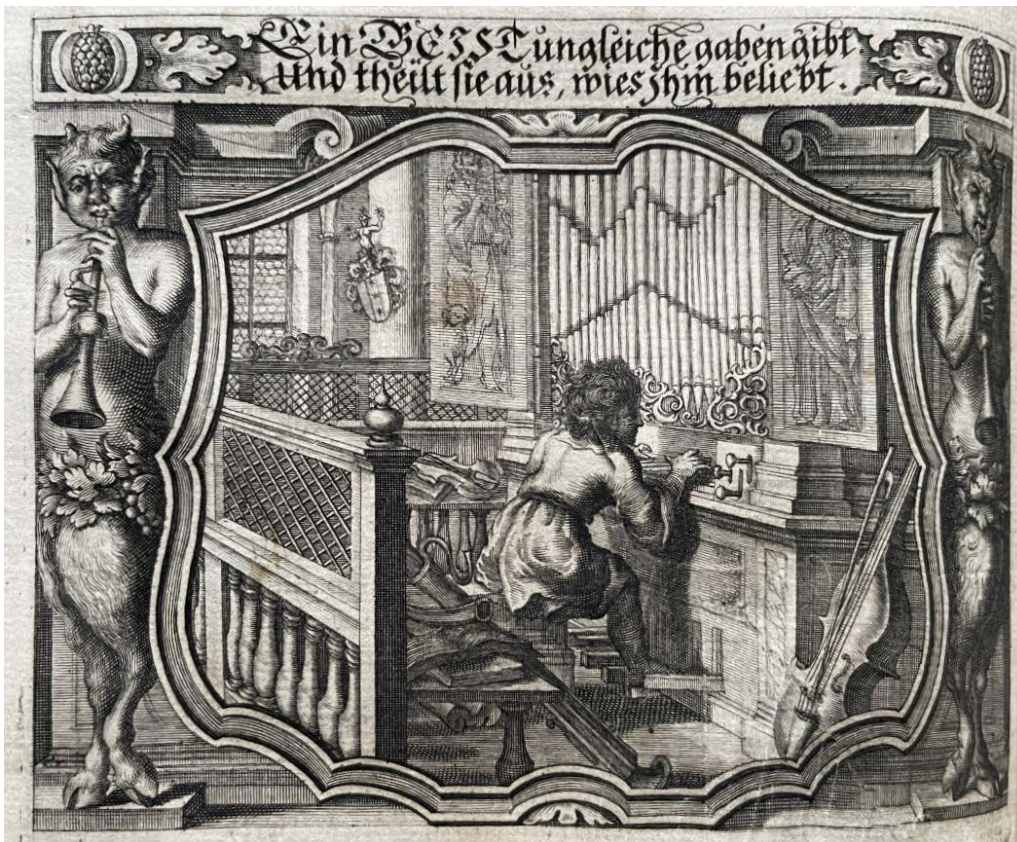 Ein GEIST ungleiche gaben gibt
Und theilt sie aus, wies Jhm beliebt.